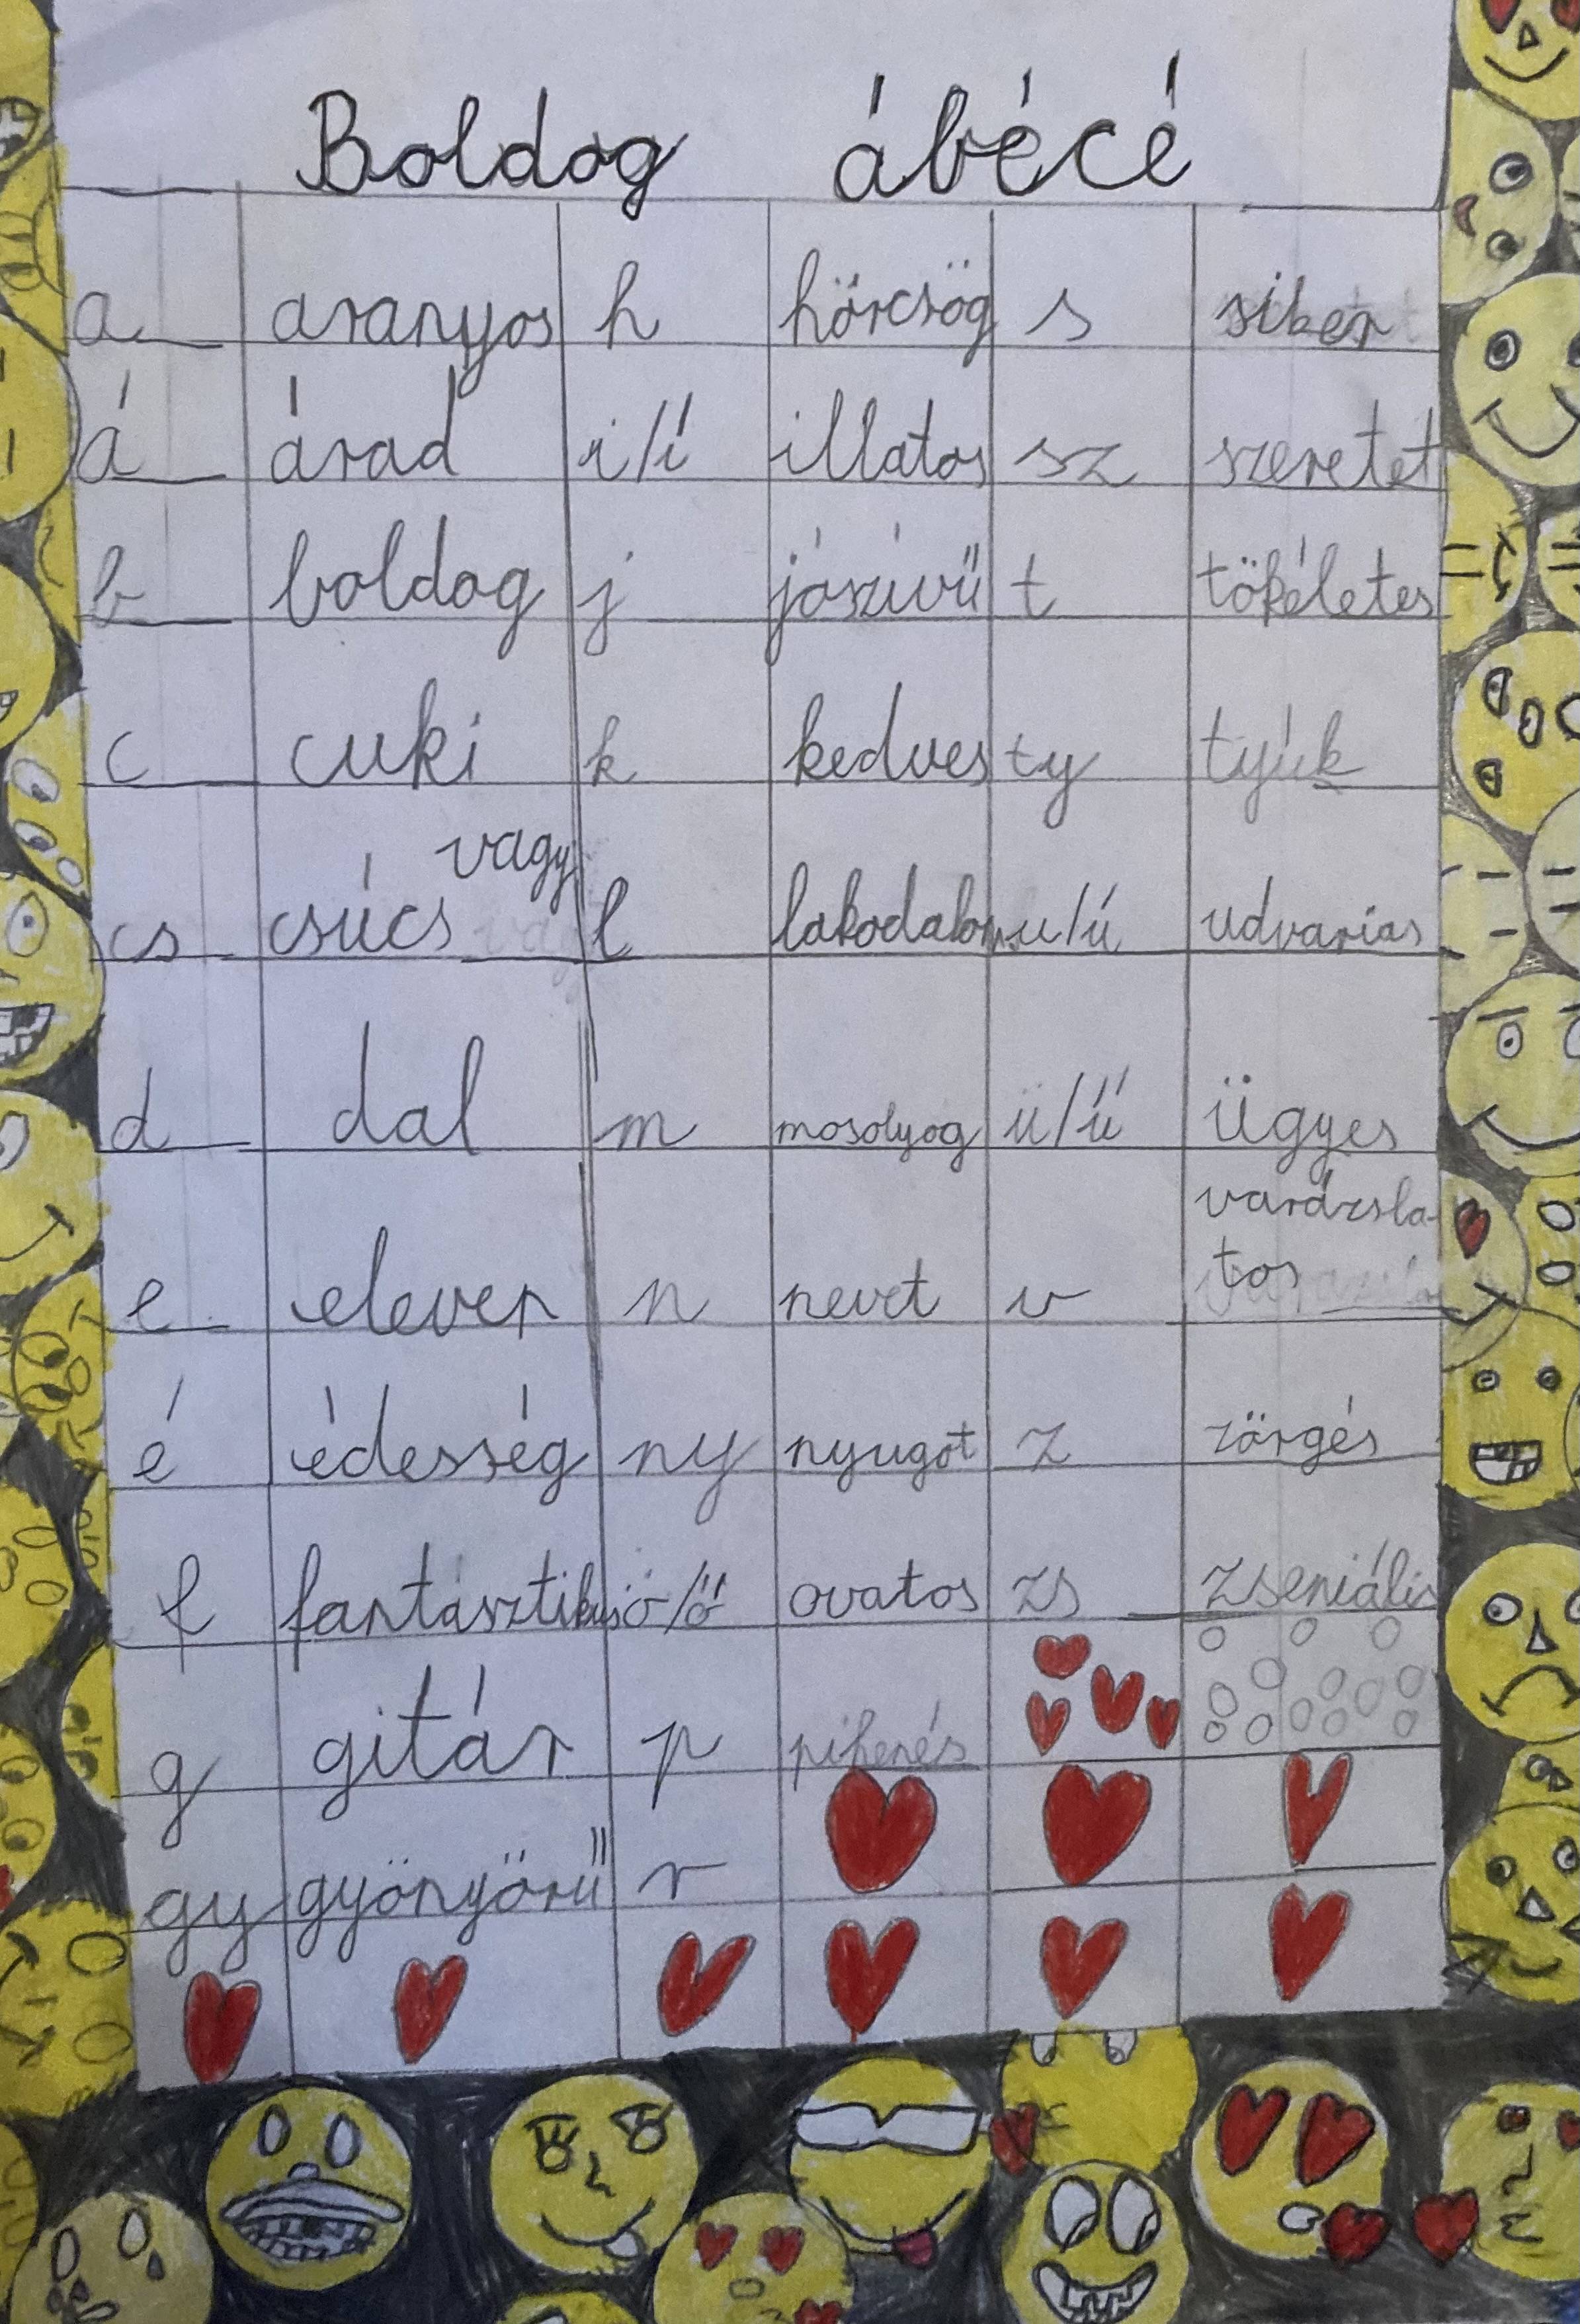 Boldog ábécé
a aranyos h hörcsög s siker
á árad i/í illatos sz szeretet
b boldog j jószívű t tökéletes
c cuki k kedves ty tyúk
cs csúcs vagy l lakodalom u/ú udvarias
d dal m mosolyog ü/ű ügyes
e eleven n nevet v varázsla-
tos
é édesség ny nyugot z zörgés
f fantásztikus ö/ő ovatos zs zseniális
g gitár p pihenés
gy gyönyörű r